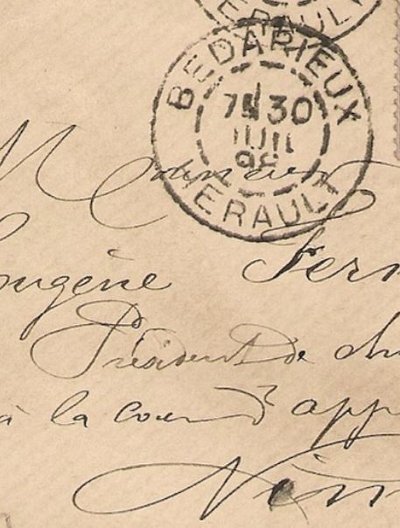 HERAULT
BEDARIEUX
1
7E30
JUIL
98
HERAULT
Monsieur
Eugène Fern
Président de cha
à la cour d'app
Nîm